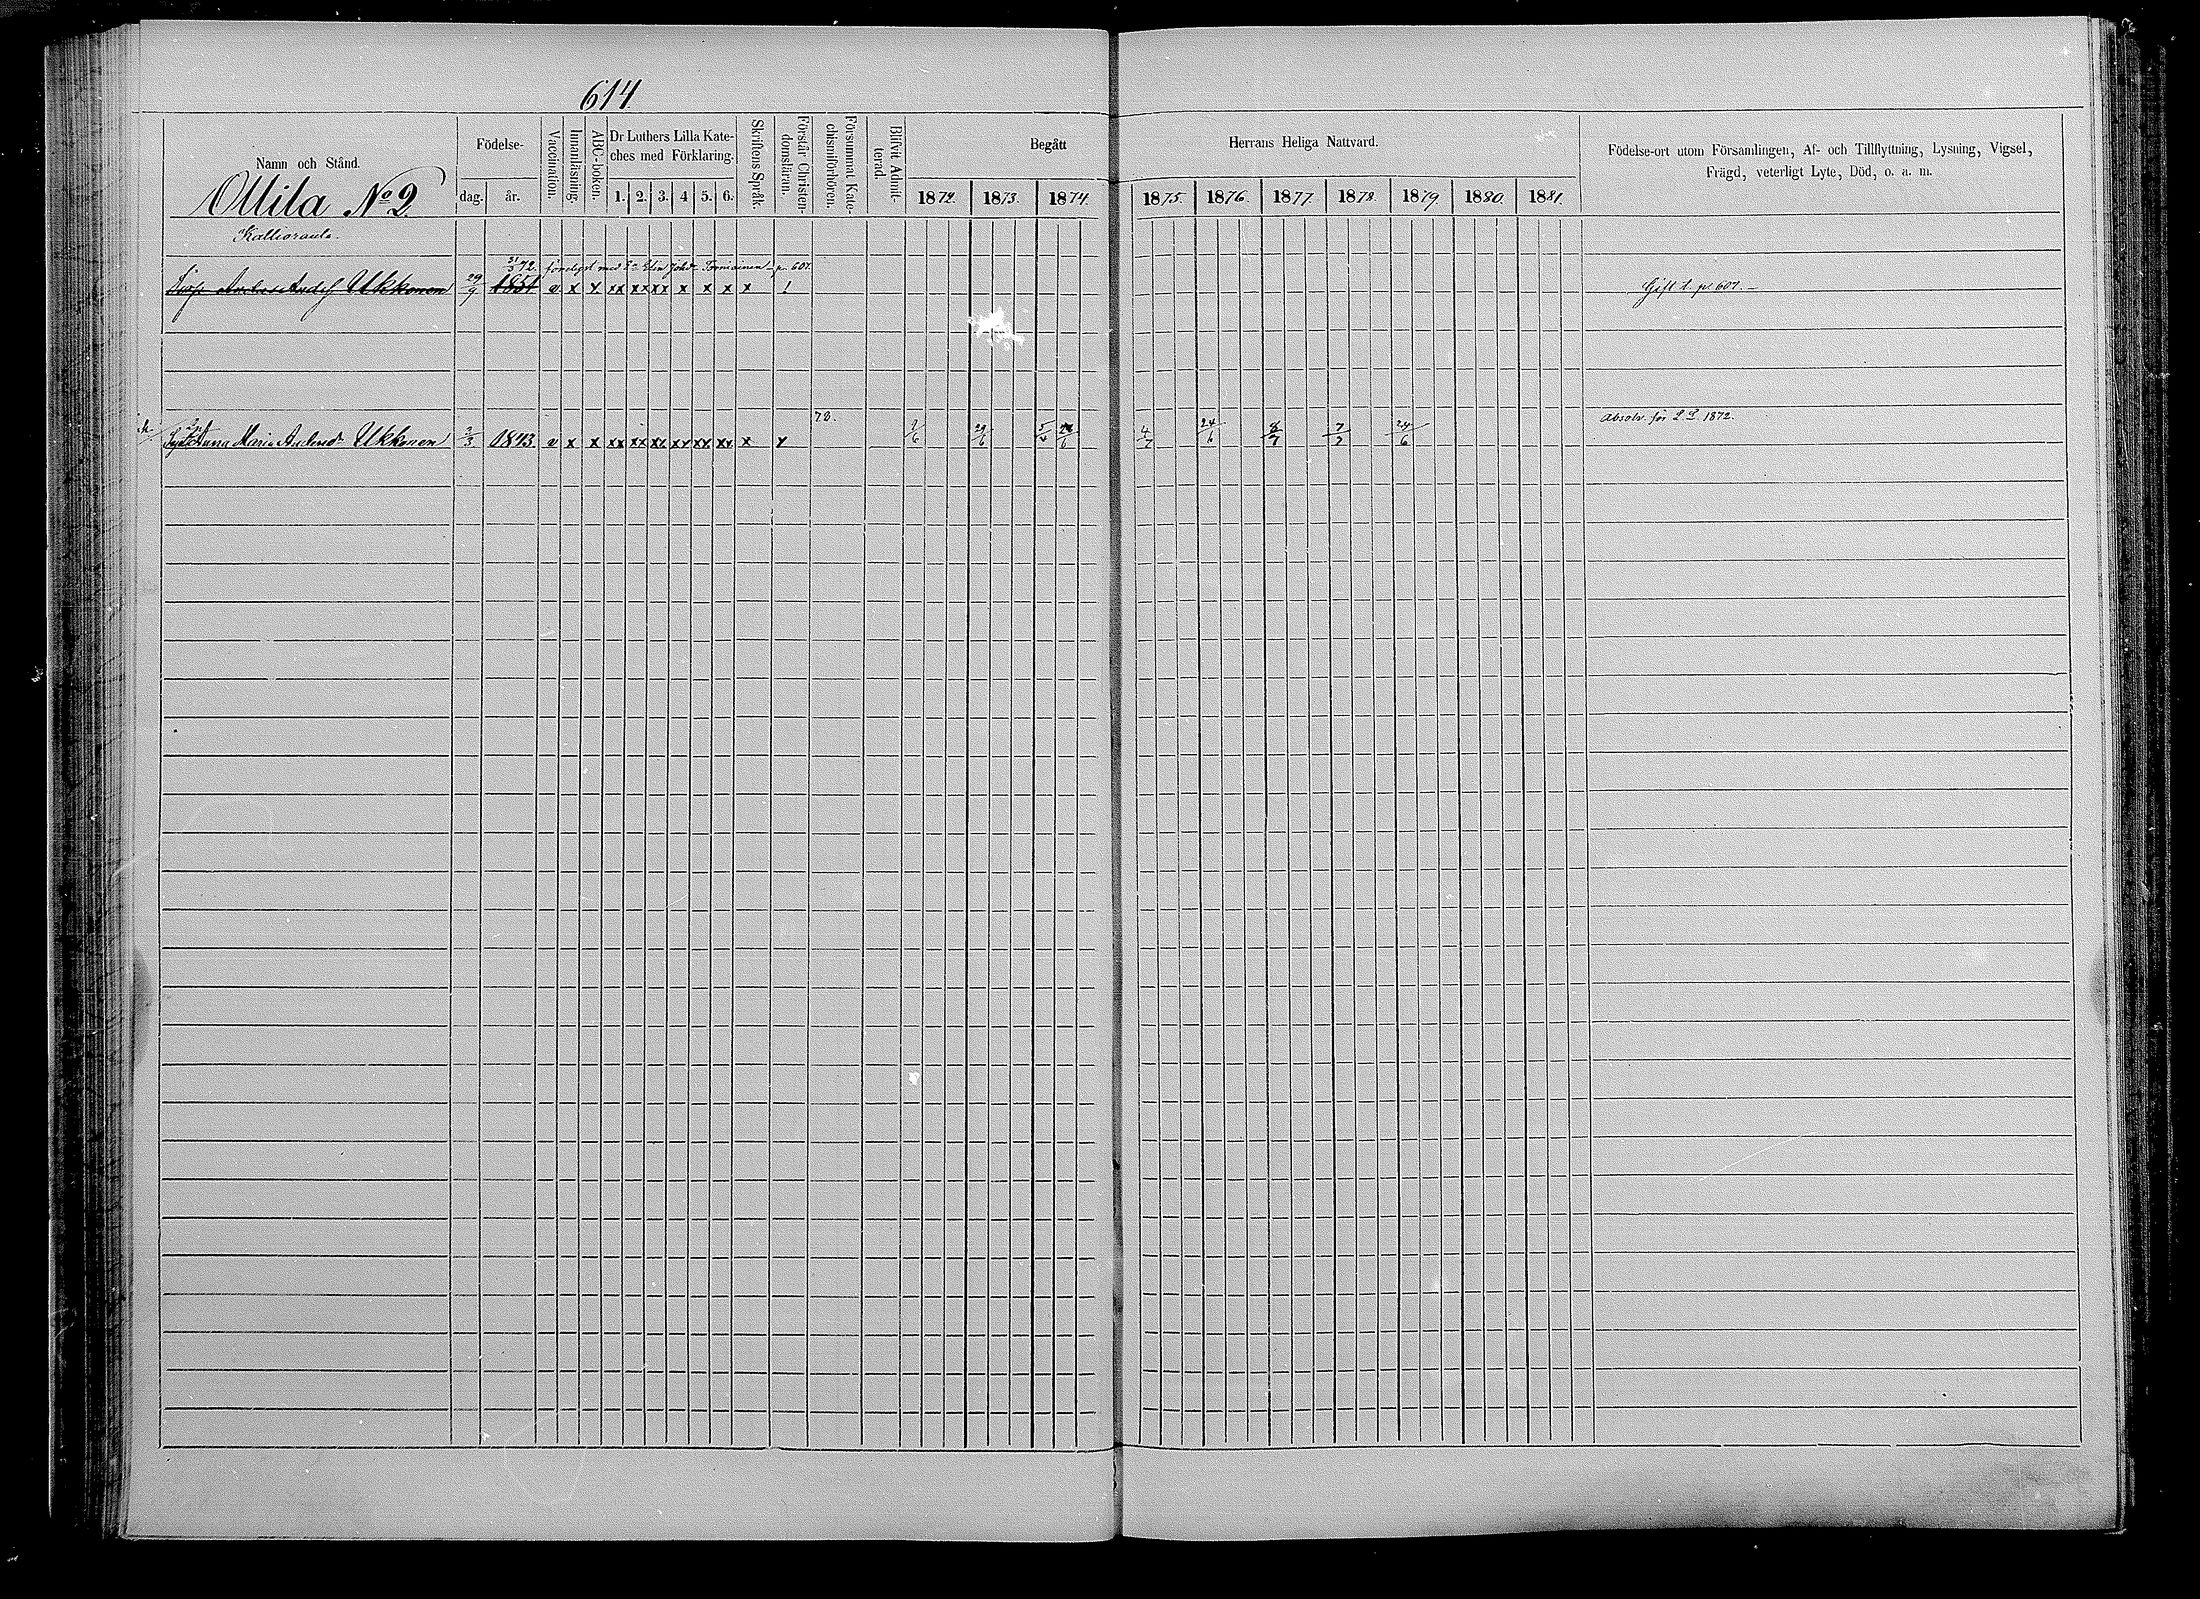 614
Namn och Stånd.
Födelse-
dag.
år.
Vaccination.
Innanläsning.
ABC-boken.
Dr Luthers Lilla Kate-
ches med Förklaring.
1. 2. 3. 4 5. 6.
Skriftens Språk.
Förstår Christen-
domsläran.
Försummat Kate-
chismiförhören.
Blifvit Admit-
terad
Begått
1872. 1873. 1874.
Herrans Heliga Nattvard.
1875. 1876. 1877. 1878. 1879. 1880. 1881.
Födelse-ort utom Församlingen, Af- och Tillflyttning, Lysning, Vigsel,
Frägd, veterligt Lyte, Död, o. a. m.
Ollila No 2.
31/3 72. med Elin Johdr Torniainen p. 607.
Ukkonen 29/9 1851 v x x xx xx xx x x x x ! Gift t. p. 607.
73. Absolv. för 1872.
Anna Maria Ukkonen 2/3 1843. v x x xx xx xx xx xx xx x x 2/6 29/6 5/4 4/7 24/6 8/7 7/7 24/6